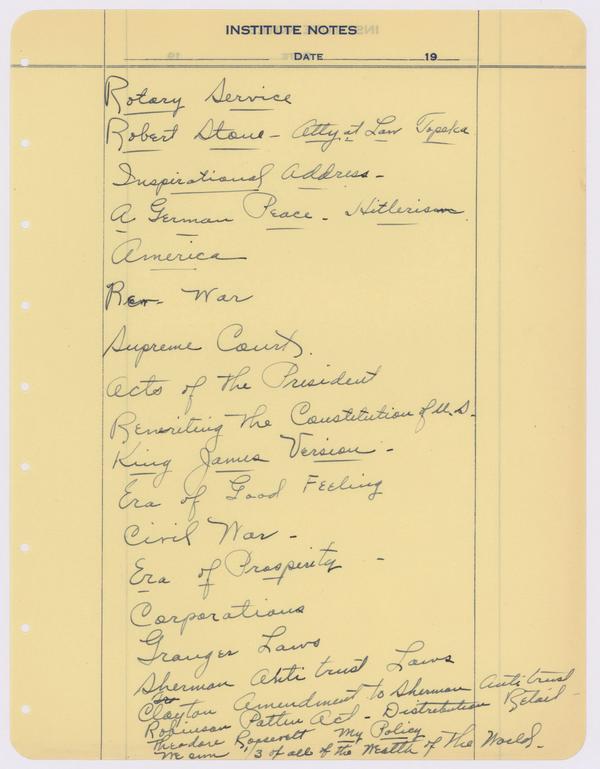 INSTITUTE NOTES
DATE 19
Rotary Service
Robert Stone - Atty at Law Topeka
Inspirational Address -
A German Peace - Hitlerism
America
Rev - War
Supreme Court
Acts of the President
Rewriting the Constitution of U.S.
King James Version -
Era of Good Feeling
Civil War -
Era of Prosperity -
Corporations
Granger Laws
Sherman Anti trust Laws
Clayton Amendment to Sherman Anti trust
Robinson Patten Act - Distribution Retail -
Theodore Roosevelt My Policy
We own 1/3 of all of the Wealth of the World -